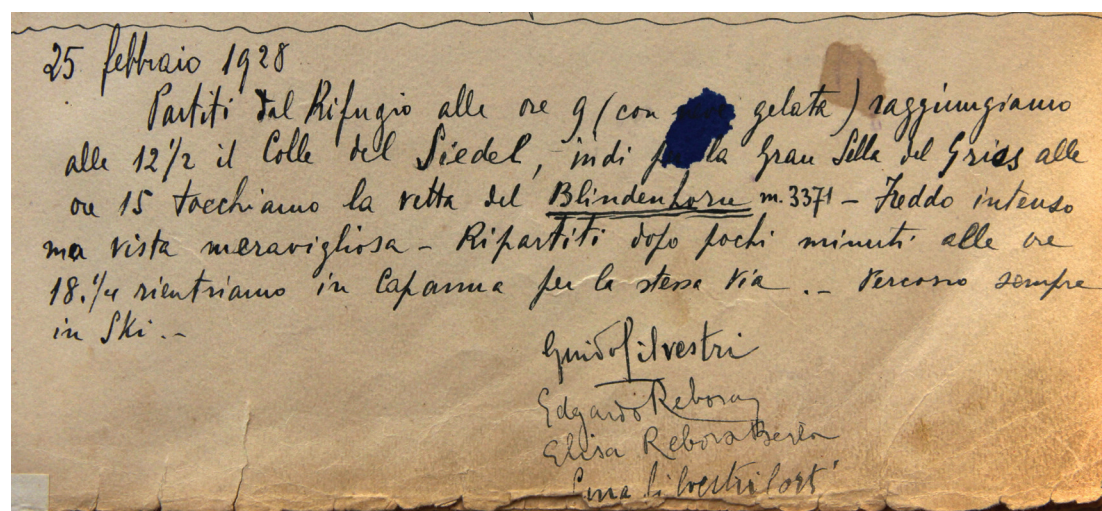 25 febbraio 1928
Partiti dal Rifugio alle ore 9 (con gelata) raggiungiamo
alle 12 1/2 il Colle del Siedel, indi la Gran Sella del Gries alle
ore 15 tocchiamo la vetta del Blindenhorn m. 3371 - Freddo intenso
ma vista meravigliosa - Ripartiti dopo pochi minuti alle ore
18.1/4 rientriamo in Capanna per la stessa via . - Percorso sempre
in Ski . -
Guido Silvestri
Edgardo Rebora
Elisa Rebora
Silvestri